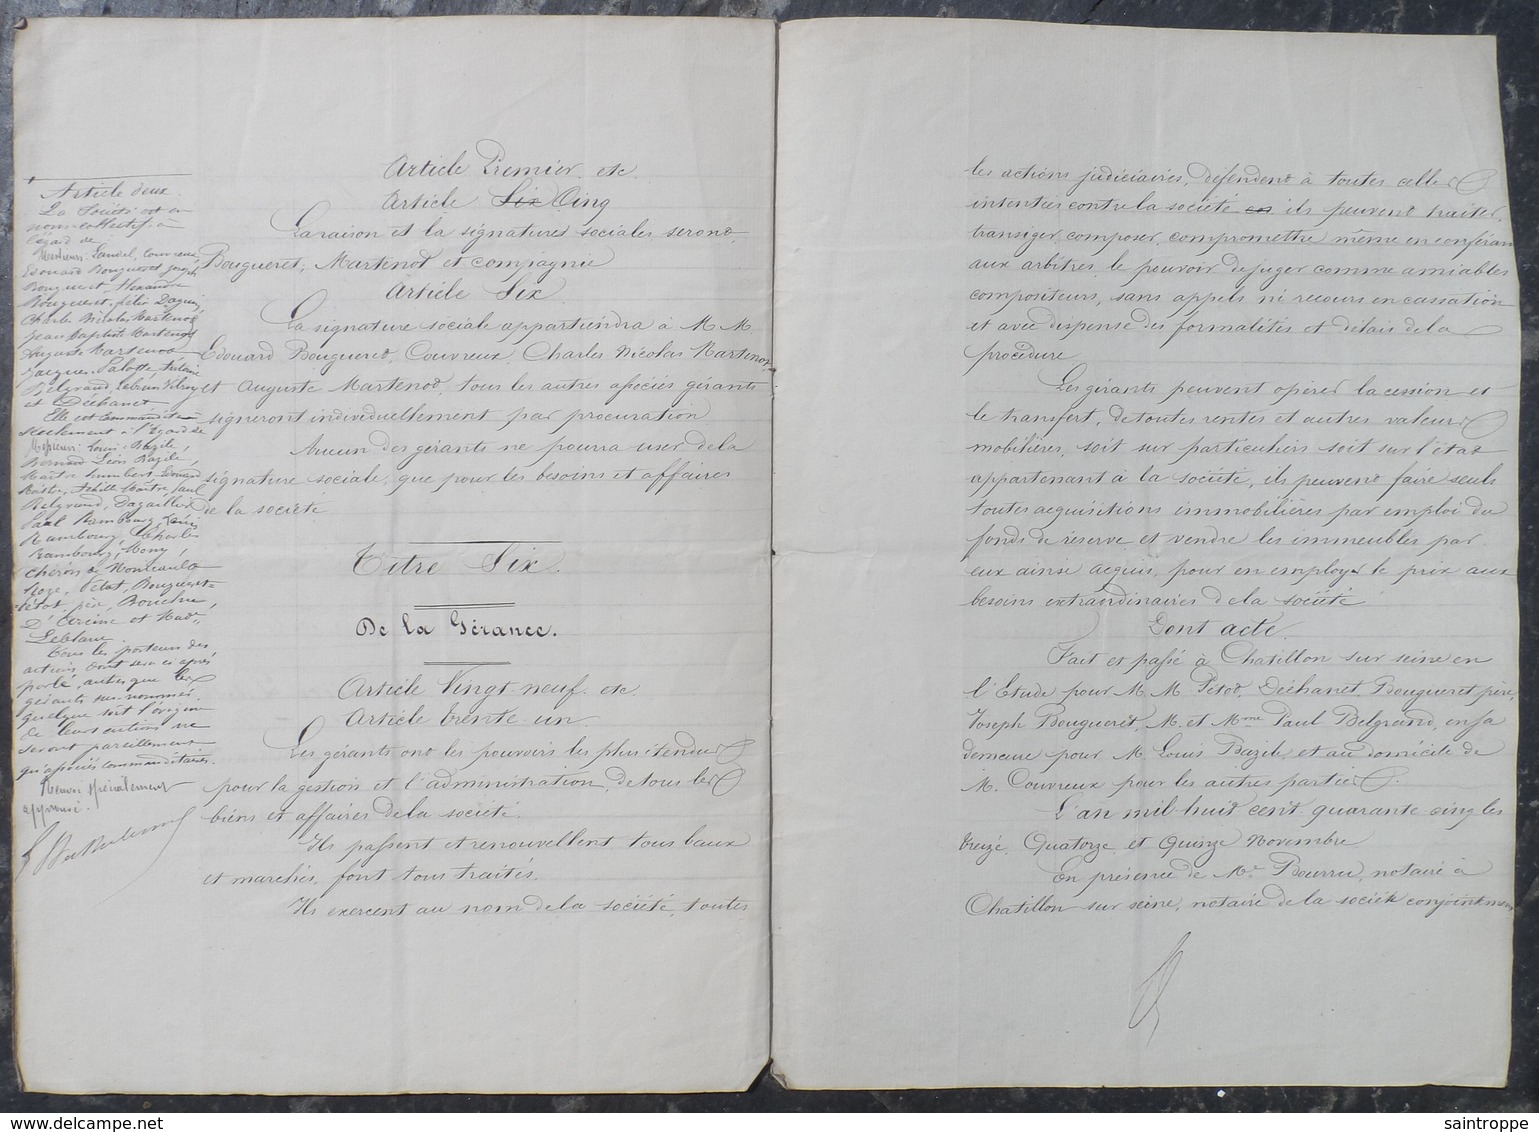 Article deux.
La Société est en
nom collectif à
l'égard de
Messieurs: Landel, Couvreux,
Edouard Bougueret Joseph
Bougueret et Alexandre
Bougueret, félix Daguin,
Charles Nicolas Martenot
Jean Baptiste Martenot
Auguste Martenot
Jacques Palotte,
Belgrand, Lebrun Virloy
et Déchanet
Elle est Commandite
seulement à l'égard de
Messieurs: Louis Bazile,
Bernard Léon Bazile,
Maître humbert, Edouard
Maître, Achille Maître, Paul
Belgrand, Dagaillos
Paul Rambourg, Louis
Rambourg, Charles
Rambourg, Mony,
Chéron de Monceaulo
Petot, Bougueret
Petot père,
et Made
Leblanc.
Tous les porteurs des
actions dont sera ci après
parlé, autres que les
gérants sus-nommés.
quelque soit l'origine
de leurs actions ne
seront pareillement
qu'associés commanditaires.
Renvoi spécialement
approuvé.
Article Premier. etc.
Article Six Cinq
La raison et la signatures sociales seront,
Bougueret, Martenot et compagnie
Article Six.
La signature sociale appartiendra à M. M.
Edouard Bougueret, Couvreux, Charles Nicolas Martenot
et Auguste Martenot, tous les autres associés gérants
signeront individuellement par procuration
Aucun des gérants ne pourra user de la
signature sociale, que pour les besoins et affaires
de la société
Titre Six.
De la Gérance.
Article Vingt-neuf. etc.
Article trente-un.
Les gérants ont les pouvoirs les plus étendus
pour la gestion et l'administration, de tous les
biens et affaires de la société.
Ils passent et renouvellent tous baux
et marchés, font tous traités.
Ils exercent au nom de la société, toutes
les actions judiciaires, défendent à toutes celles
intentées contre la société en ils peuvent traiter,
transiger, composer, compromettre même en conféran
aux arbitres, le pouvoir de juger comme amiables
compositeurs, sans appels ni recours en cassation
et avec dispense des formalités et délais de la
procédure
Les gérants peuvent opérer la cession et
le transfert, de toutes rentes et autres valeurs
mobilières, soit sur particuliers soit sur l'état
appartenant à la société, ils peuvent faire seuls
toutes acquisitions immobilières par emploi du
fonds de réserve et vendre les immeubles par
eux ainsi acquis, pour en employer le prix aux
besoins extraordinaires de la société
Dont acte.
Fait et passé à Chatillon sur seine en
l'Etude pour M. M. Petot, Déchanet, Bougueret père,
Joseph Bougueret, M. et Mme Paul Belgrand, en sa
demeure pour M. Louis Bazile, et au domicile de
M. Couvreux pour les autres parties.
L'an mil huit cent quarante cinq les
treize, Quatorze et Quinze Novembre
En présence de Me Bourru, notaire à
Chatillon sur seine, notaire de la société conjointement
www.delcampe.net
saintroppe